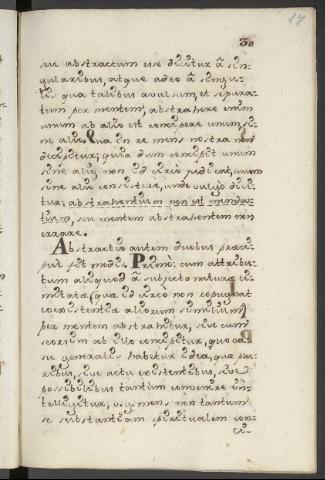 30 84
seu abstractum esse dicitur à sin-
gularibus, atque adeo à singu-
lis qua talibus avulsum, et separa-
tum per mentem, abstrahere enim
unum ab alio est concipere unum, si-
ne alio. Qua in re mens nostra non
decipitur, quia dum concipit unum
sine alio, non id circo judicat, unum
sine alio consistere, unde vulgo dici-
tur, abstrahentium non est menda-
tium, seu mentem abstrahentem non
errare.
Abstractio autem duobus præci-
puè fit modis. Primo: cum attribu-
tum aliquod à subjecto naturæ li-
mitatæ, quæ id circo non repugnat
coexistentia aliorum similium,
per mentem abstrahitur, sive cum
seorsim ab illo concipitur, quo ca-
su generalis habetur idea, quæ plu-
ribus, sive actu existentibus, sive
possibilibus tantum convenire in-
telligitur, v. g. mens non tantum
se substantiam spiritualem con-
ci-